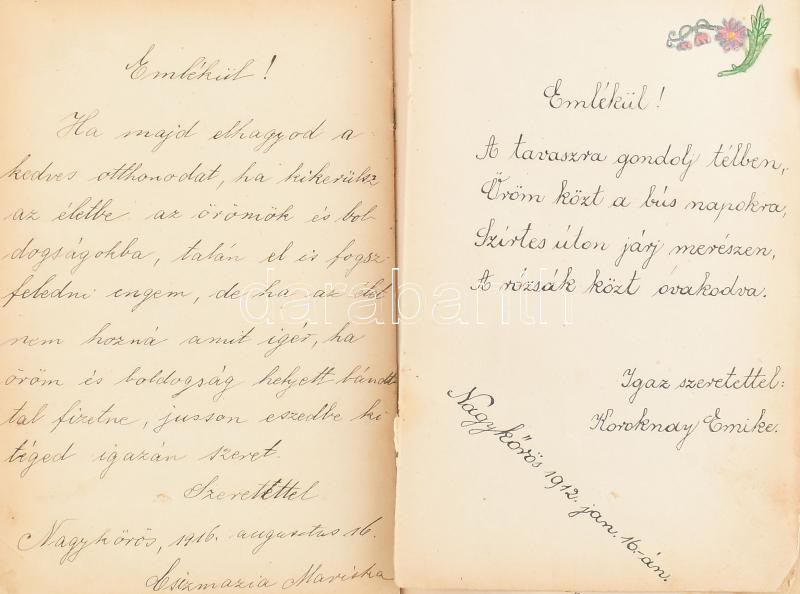 Emlékül!
Ha majd elhagyod a
kedves otthonodat, ha kikerülsz
az életbe az örömök és bol-
dogságokba, talán el is fogsz
feledni engem, de ha az élet
nem hozná amit igér, ha
öröm és boldogság helyett bánat-
tal fizetne, jusson eszedbe ki
téged igazán szeret.
Szeretettel
Nagykőrös, 1916. augusztus 16.
Csizmazia Mariska
Emlékül!
A tavaszra gondolj télben,
Öröm közt a bús napokra,
Szirtes úton járj merészen,
A rózsák közt óvakodva.
Igaz szeretettel:
Koroknay Emike.
Nagykőrös 1912. jan. 16.-án.
darabanth